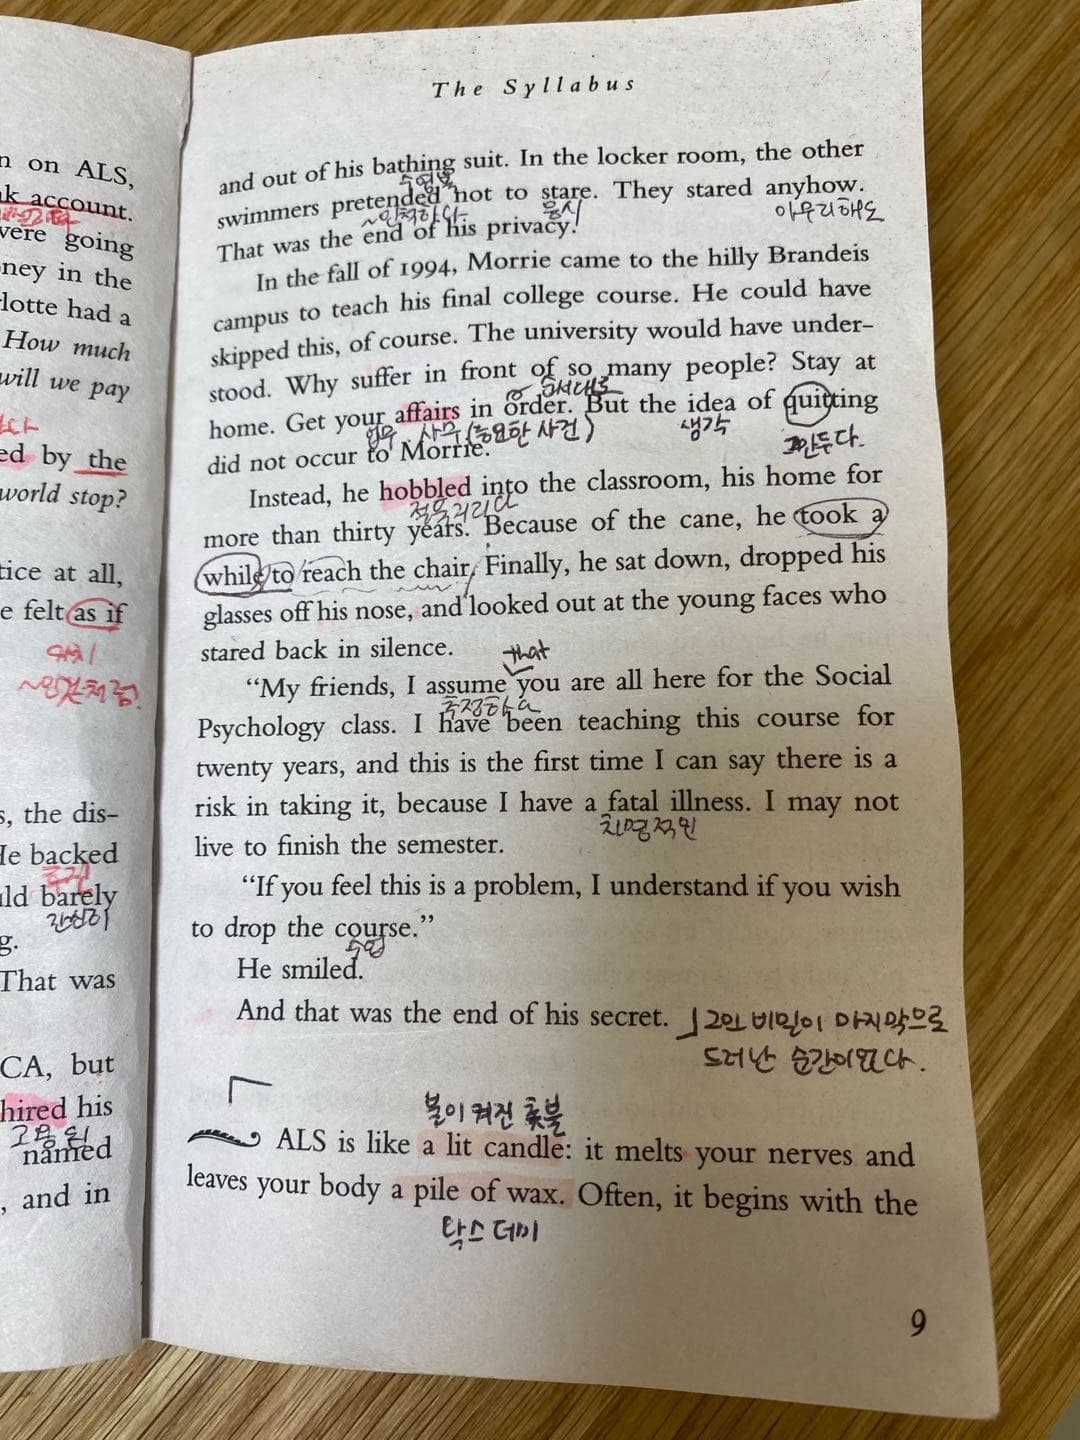 n on ALS,
k account.
were going
ney in the
lotte had a
How much
will we pay
ed by the
world stop?
tice at all,
e felt as if
마치
~인것처럼.
s, the dis-
He backed
후진
uld barely
간신히
g.
That was
CA, but
hired his
고용된
named
, and in
The Syllabus
and out of his bathing suit. In the locker room, the other
수영복
swimmers pretended not to stare. They stared anyhow.
~인척하다 응시 아무리해도
That was the end of his privacy.
In the fall of 1994, Morrie came to the hilly Brandeis
campus to teach his final college course. He could have
skipped this, of course. The university would have under-
stood. Why suffer in front of so many people? Stay at
순서대로
home. Get your affairs in order. But the idea of quitting
업무 사무 (중요한 사건) 생각 그만두다.
did not occur to Morrie.
Instead, he hobbled into the classroom, his home for
절뚝거리다
more than thirty years. Because of the cane, he took a
while to reach the chair. Finally, he sat down, dropped his
glasses off his nose, and looked out at the young faces who
stared back in silence.
that
"My friends, I assume you are all here for the Social
추정하다
Psychology class. I have been teaching this course for
twenty years, and this is the first time I can say there is a
risk in taking it, because I have a fatal illness. I may not
치명적인
live to finish the semester.
"If you feel this is a problem, I understand if you wish
to drop the course."
수업
He smiled.
And that was the end of his secret. 그의 비밀이 마지막으로
드러난 순간이었다.
불이 켜진 촛불
ALS is like a lit candle: it melts your nerves and
leaves your body a pile of wax. Often, it begins with the
왁스 더미
9